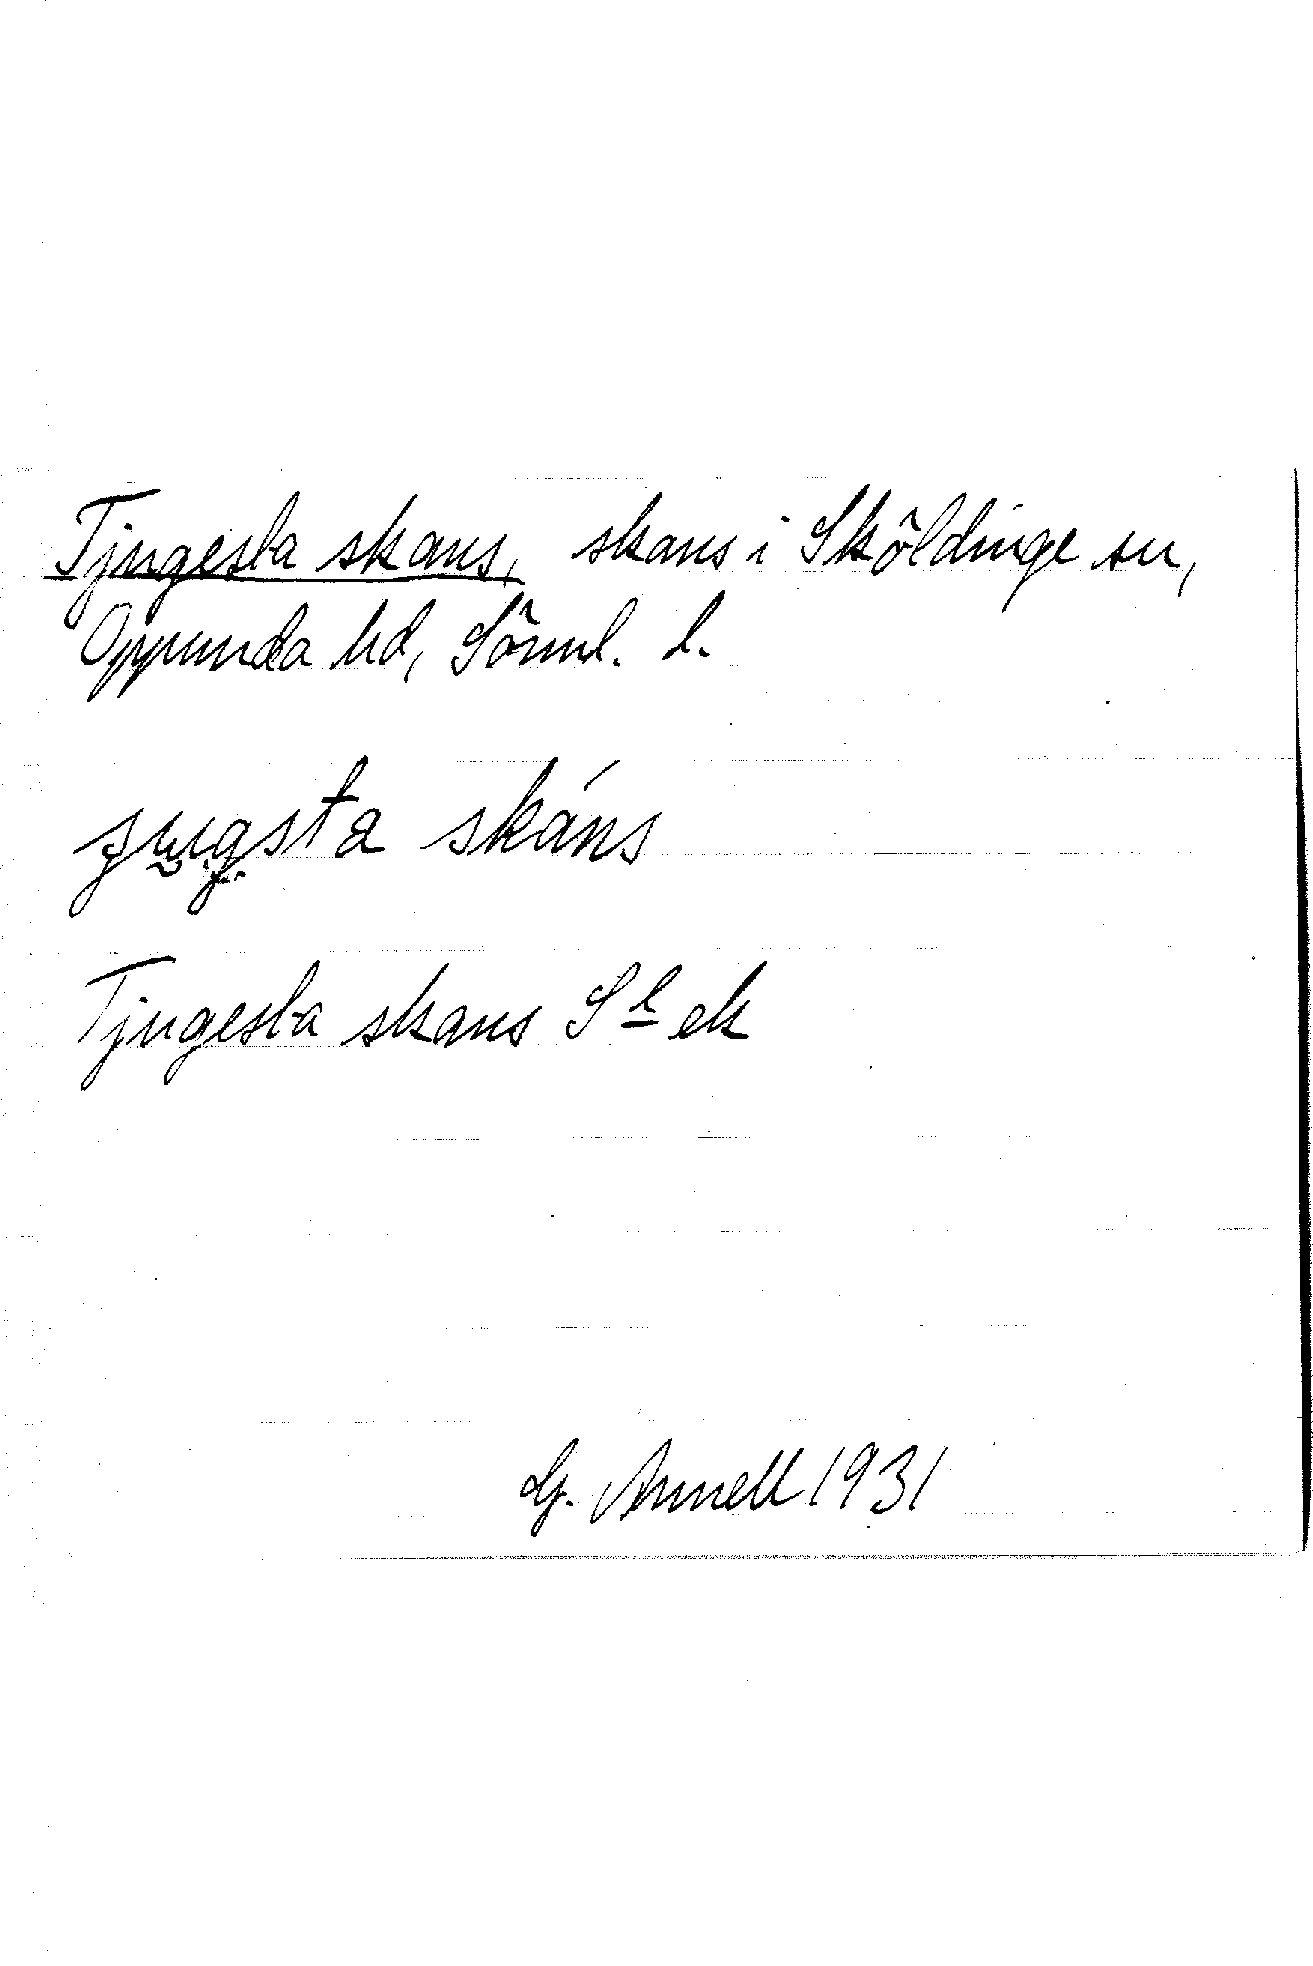 Tjugesta skans, skans i Sköldinge sn,
Oppunda hd, Sörml. l.
skáns
Tjugesta skans S ek
G. Annell 1931